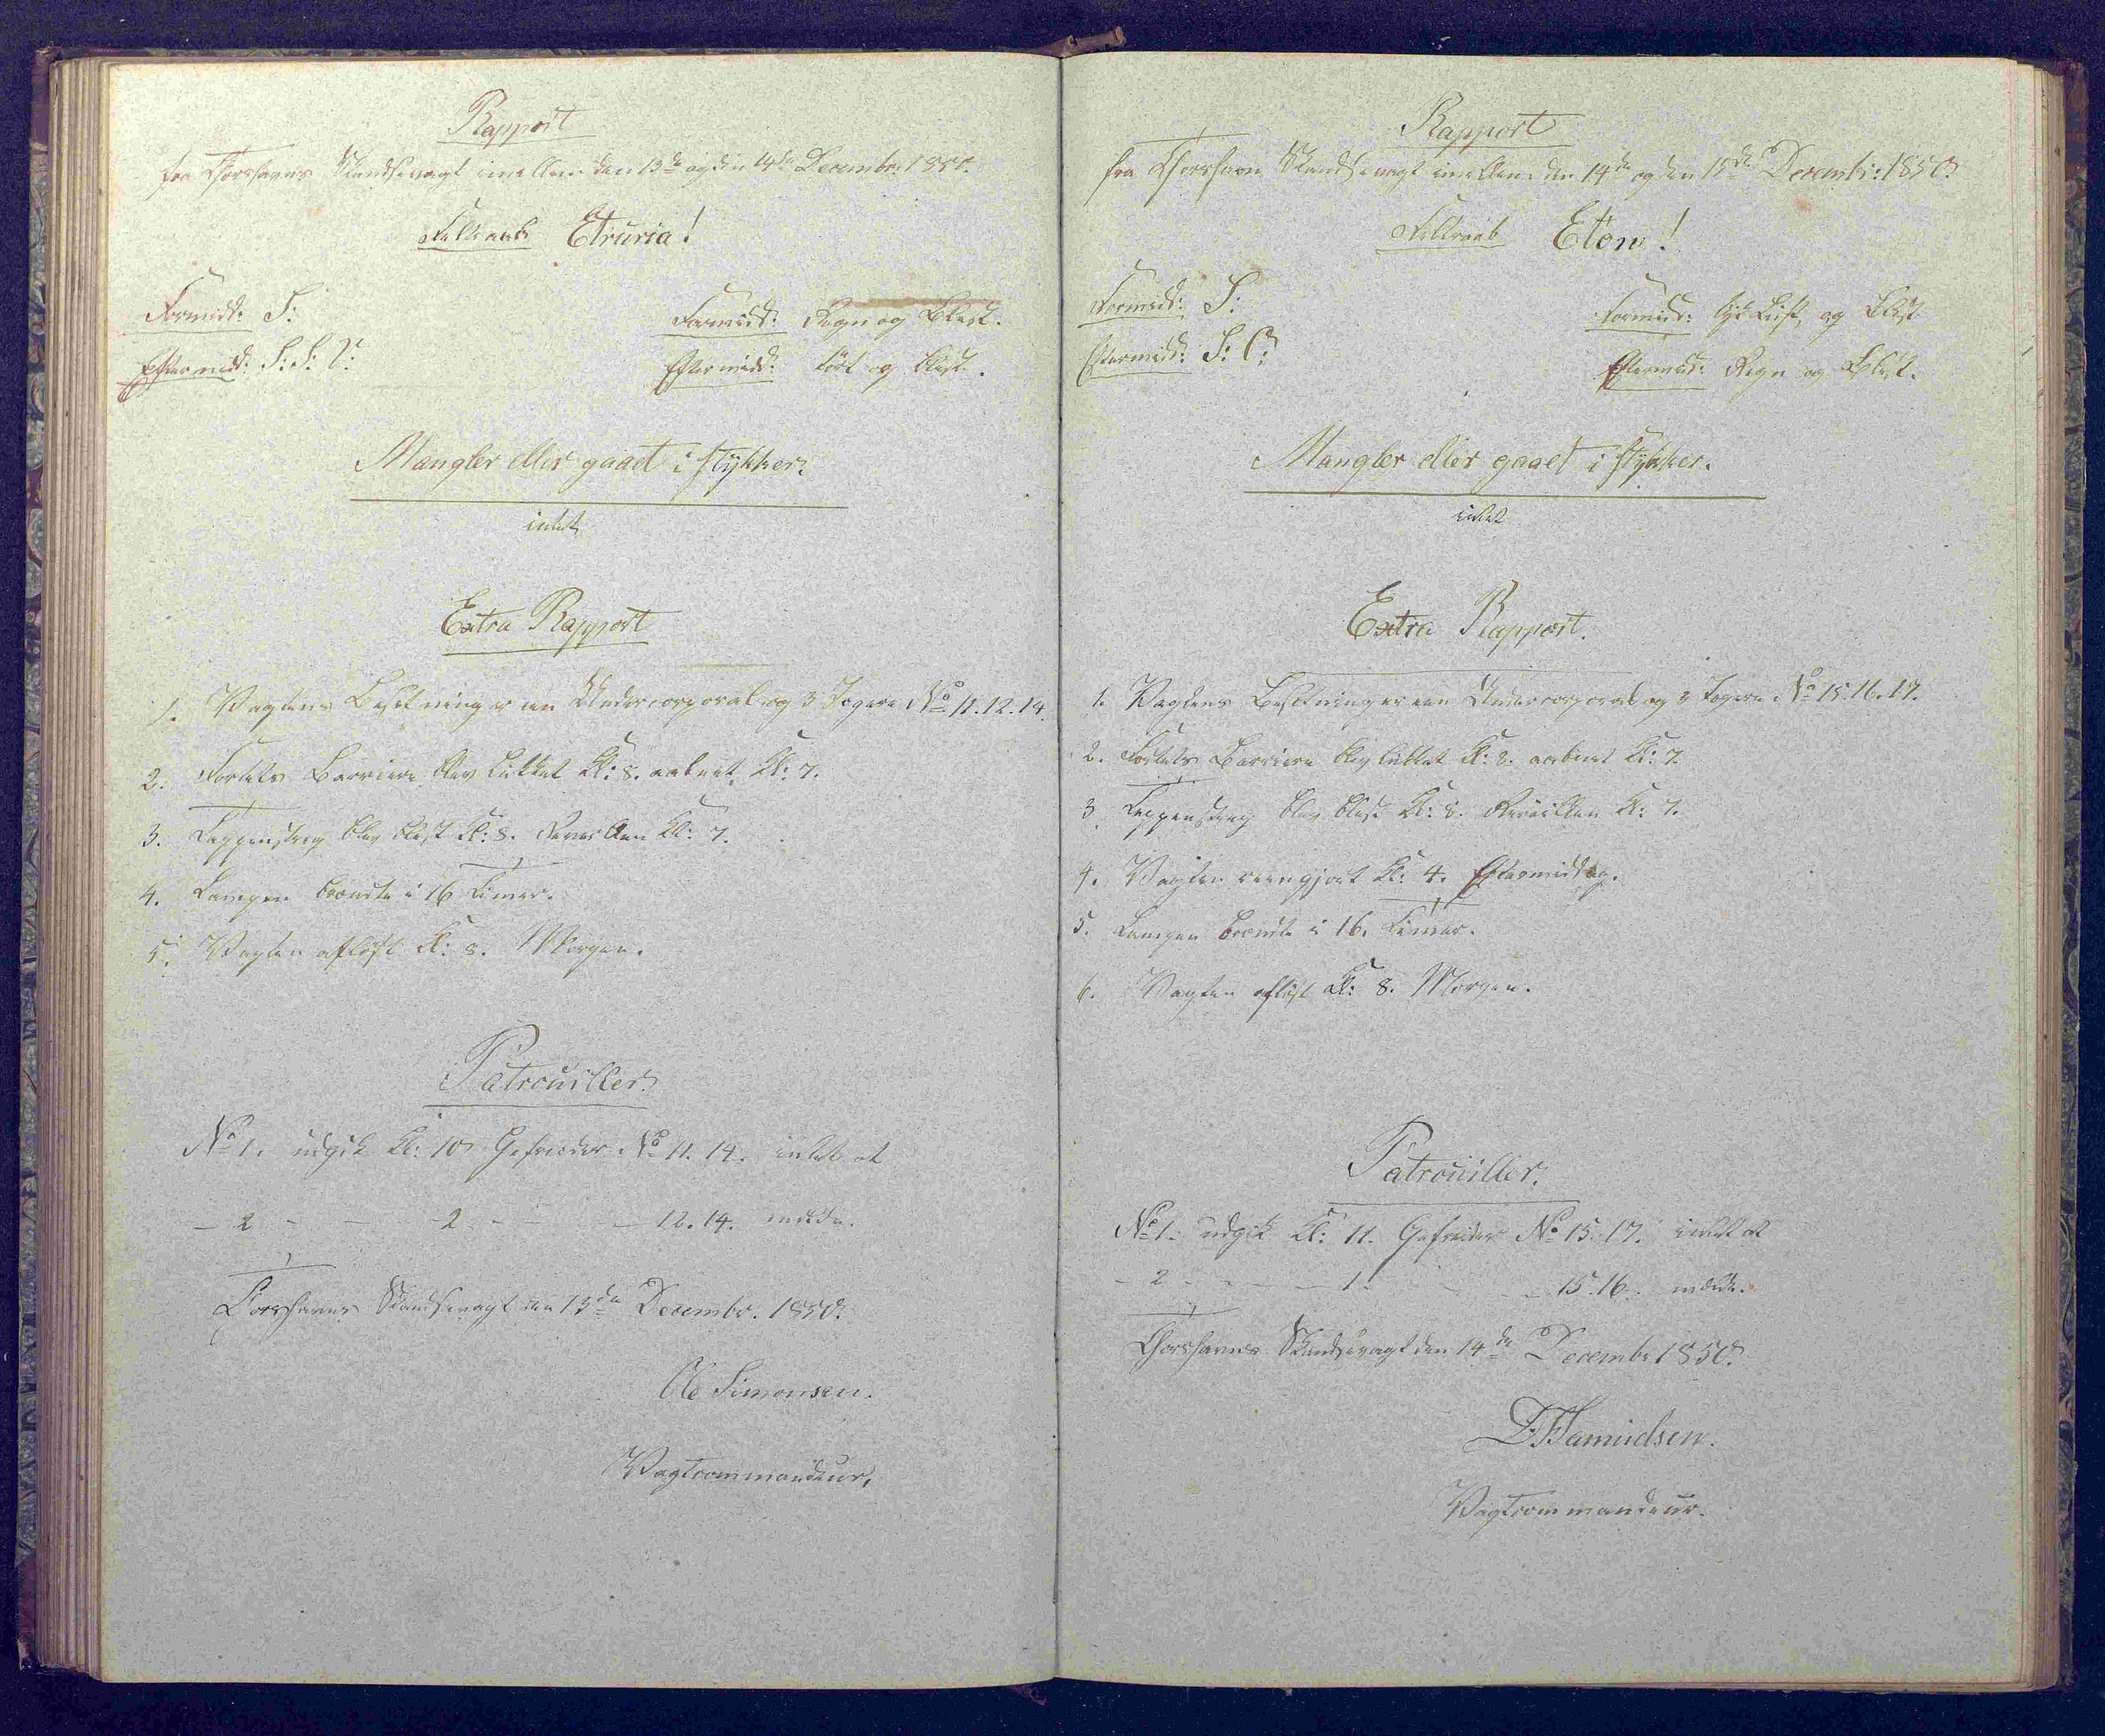 Rapport
fra Thorshavns Skandsevagt imellem den 13de og den 14de Decembr. 1850.
Feltraab Etruria!
Formidd: S:
Formidd: Regn og Blæst.
Eftermidd: S: S: V:
Eftermidd: tört og blæst.
Mangler eller gaaet i stykker.
intet
Extra Rapport
1. Vagtens Besætning er en Undercorporal og 3 Jægere No 11. 12. 14.
2. Fortets Barriere blev lukket Kl: 8. aabnet Kl: 7.
3. Tappenstreg blev blæst Kl: 8. Reveillen Kl: 7.
4. Lampen brændte i 16 Timer.
5. Vagten aflöst Kl: 8. Morgen.
Patrouiller.
No 1. udgik Kl: 10 Gefreider No 11. 14. intet at
- 2 - - - 2 - - - 12. 14. melde.
Thorshavns Skandsevagt den 13de Decembr. 1850.
Ole Simonsen.
Vagtcommandeur,
Rapport
fra Thorshavn Skandsevagt imellem den 14de og den 15de Decembr: 1850.
Feltraab Eton!
Formidd: S:
Formidd: tyk Luft, og Blæst
Eftermidd: S: O:
Eftermidd: Regn og Blæst.
Mangler eller gaaet i stykker.
intet
Extra Rapport.
1. Vagtens Besætning er een Undercorporal og 3 Jægere No 15. 16. 17.
2. Fortets Barriere blev lukket Kl: 8. aabnet Kl: 7.
3. Tappenstreg blev blæst Kl: 8. Reveillen Kl: 7.
4. Vagten reengjort Kl: 4. Eftermiddag.
5. Lampen brændte i 16. Timer.
6. Vagten aflöst Kl: 8. Morgen.
Patrouiller.
No 1. udgik Kl: 11. Gefreider No 15. 17. intet at
- 2 - - - - 1. - - - 15. 16. melde.
Thorshavns Skandsevagt den 14de Decembr 1850.
Samuelsen.
Vagtcommandeur.